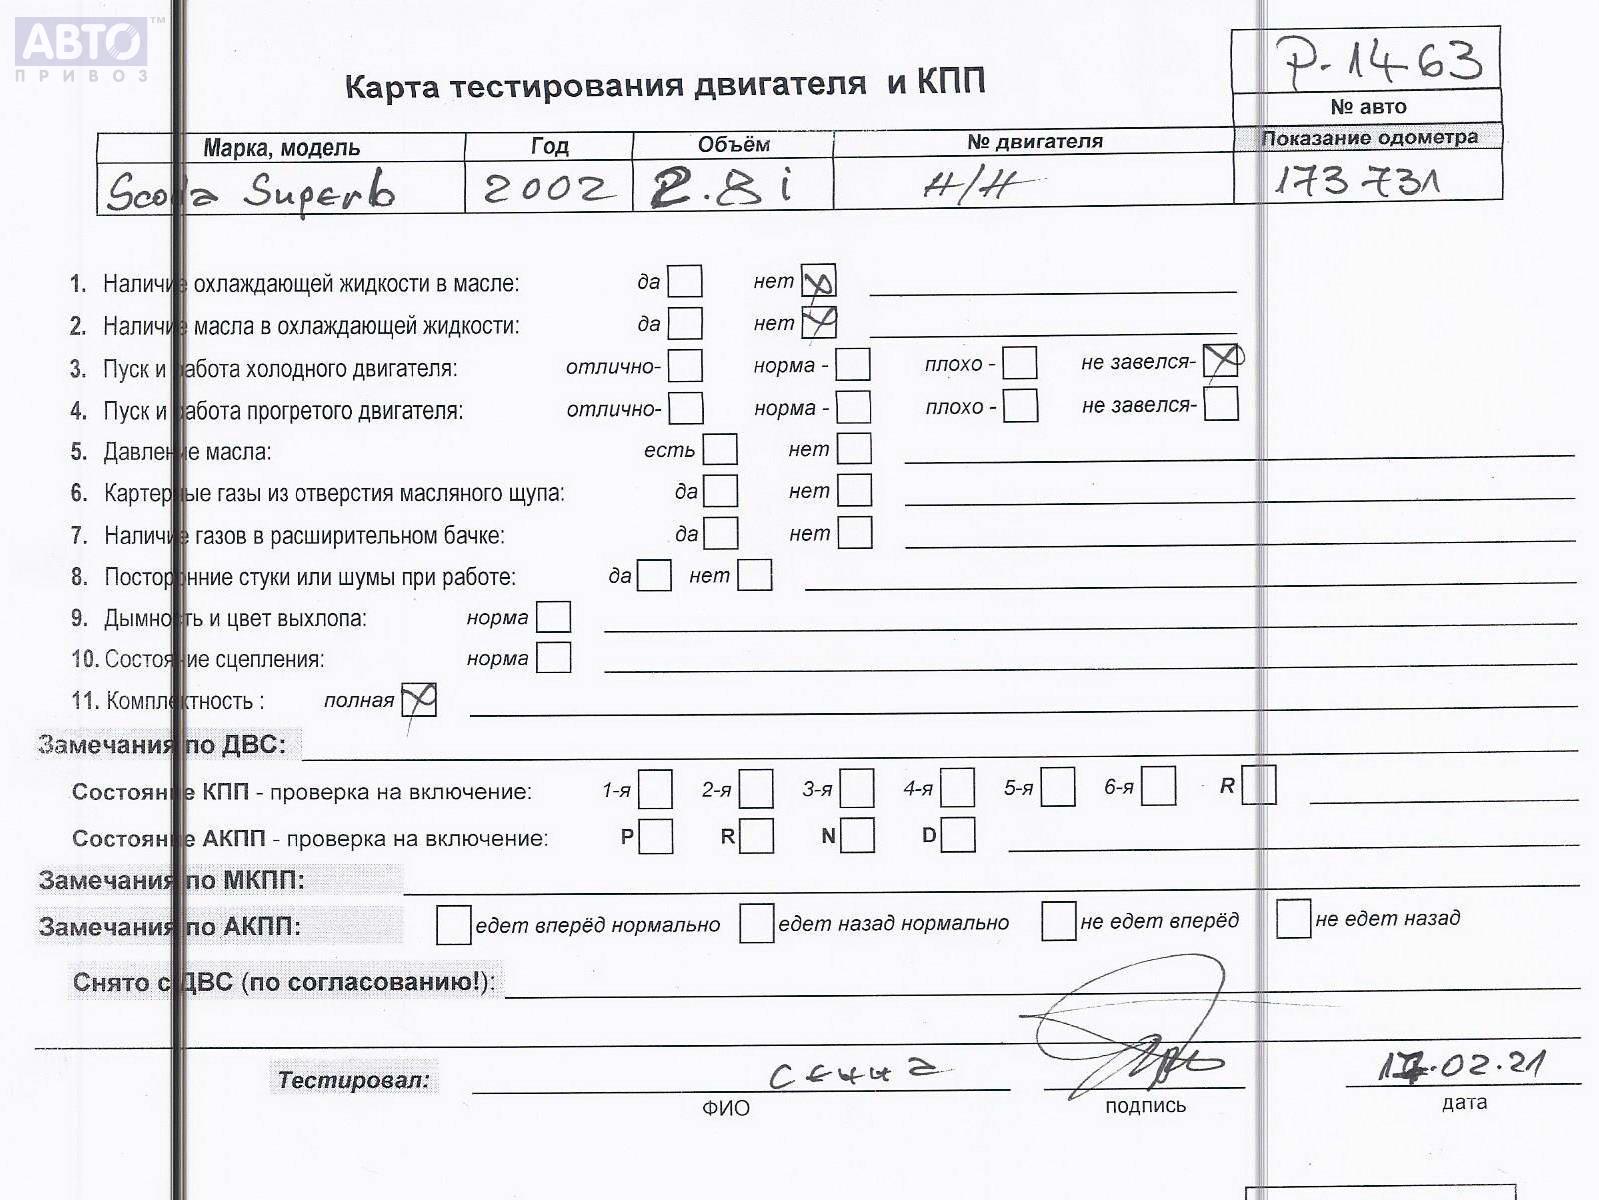 АВТО™
ПРИВОЗ
Р-1463
Карта тестирования двигателя и КПП
№ авто
Марка, модель Год Объём № двигателя Показание одометра
Scoda Superb 2002 2.8i Н/Н 173731
1. Наличие охлаждающей жидкости в масле: да нет
2. Наличие масла в охлаждающей жидкости: да нет
3. Пуск и работа холодного двигателя: отлично- норма - плохо - не завелся-
4. Пуск и работа прогретого двигателя: отлично- норма - плохо - не завелся-
5. Давление масла: есть нет
6. Картерные газы из отверстия масляного щупа: да нет
7. Наличие газов в расширительном бачке: да нет
8. Посторонние стуки или шумы при работе: да нет
9. Дымность и цвет выхлопа: норма
10. Состояние сцепления: норма
11. Комплектность : полная
Замечания по ДВС:
Состояние КПП - проверка на включение: 1-я 2-я 3-я 4-я 5-я 6-я R
Состояние АКПП - проверка на включение: P R N D
Замечания по МКПП:
Замечания по АКПП: едет вперёд нормально едет назад нормально не едет вперёд не едет назад
Снято с ДВС (по согласованию!):
Тестировал: .02.21
ФИО подпись дата